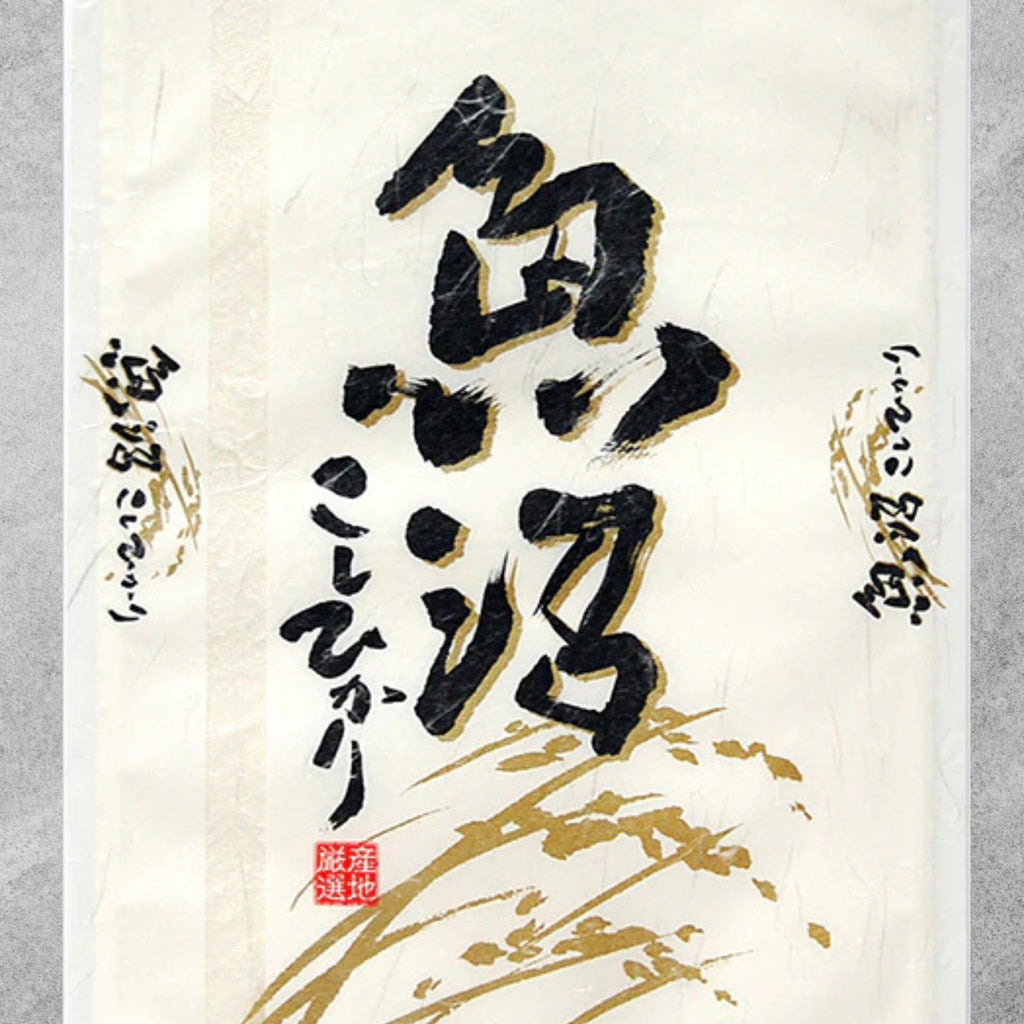 魚沼
こしひかり
産地
厳選
魚沼
こしひかり
魚沼
こしひかり